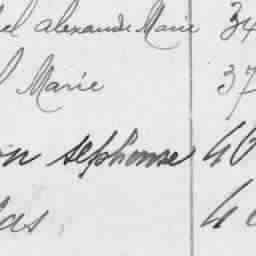 el alexande Marie 34
l Marie 37
on sephonse 40
las 4